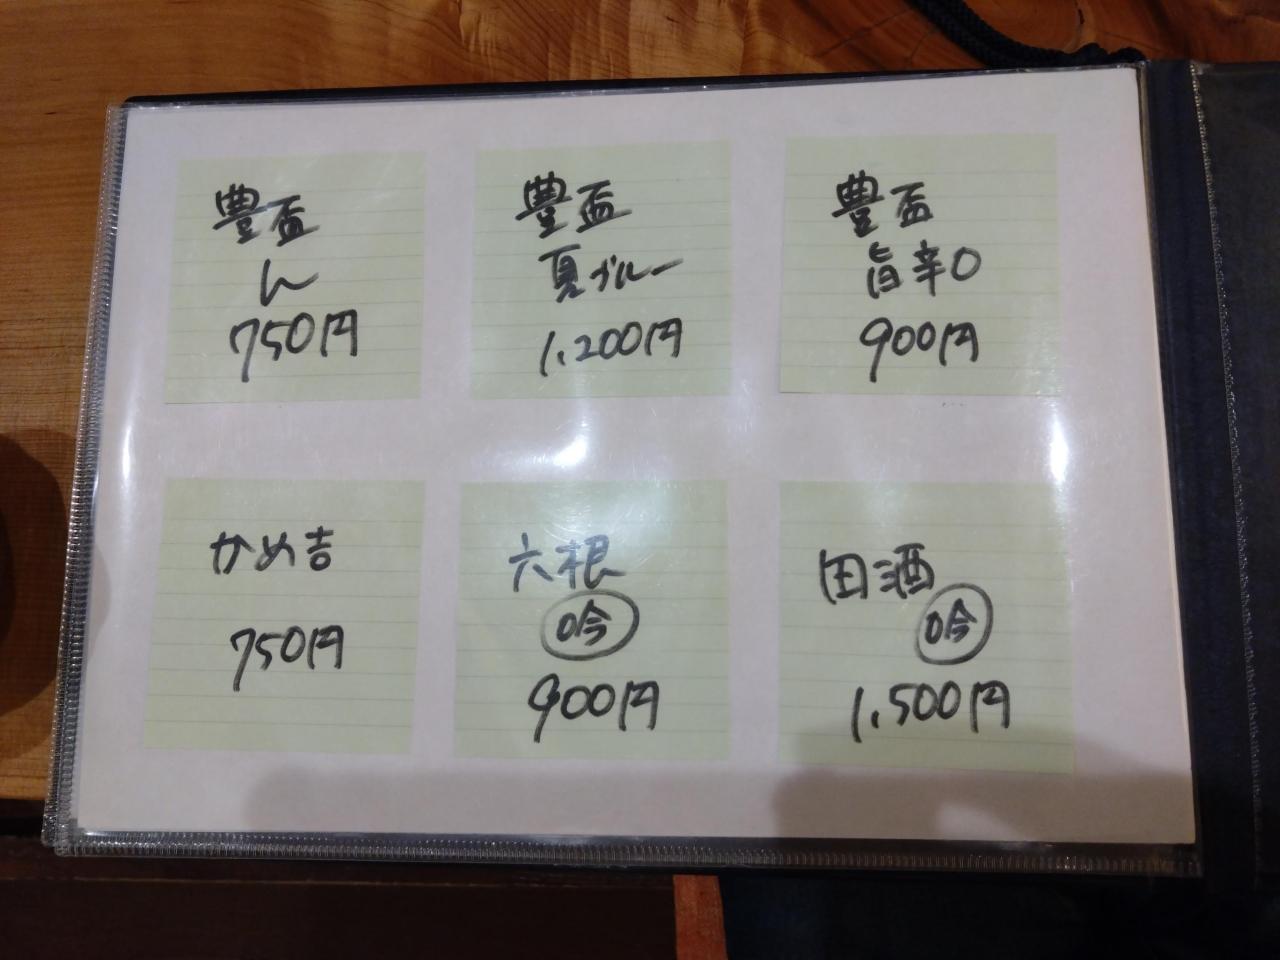 豊盃
ん
750円
豊盃
夏ブルー
1,200円
豊盃
旨辛口
900円
かめ吉
750円
六根
吟
900円
田酒
吟
1,500円